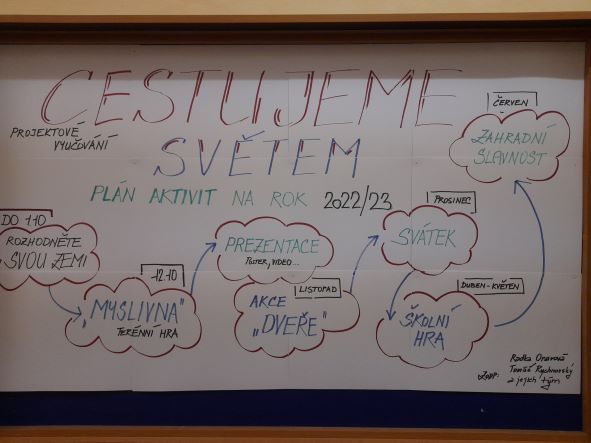 CESTUJEME
PROJEKTOVÉ
VYUČOVÁNÍ
SVĚTEM
PLÁN AKTIVIT NA ROK 2022/23
DO 1.10
ROZHODNĚTE
SVOU ZEMI
12.10
„MYSLIVNA"
TERÉNNÍ HRA
PREZENTACE
POSTER, VIDEO...
LISTOPAD
AKCE
„DVEŘE"
PROSINEC
SVÁTEK
DUBEN-KVĚTEN
ŠKOLNÍ
HRA
ČERVEN
ZAHRADNÍ
SLAVNOST
Radka
Tomáš Rychnovský
a jejich tým